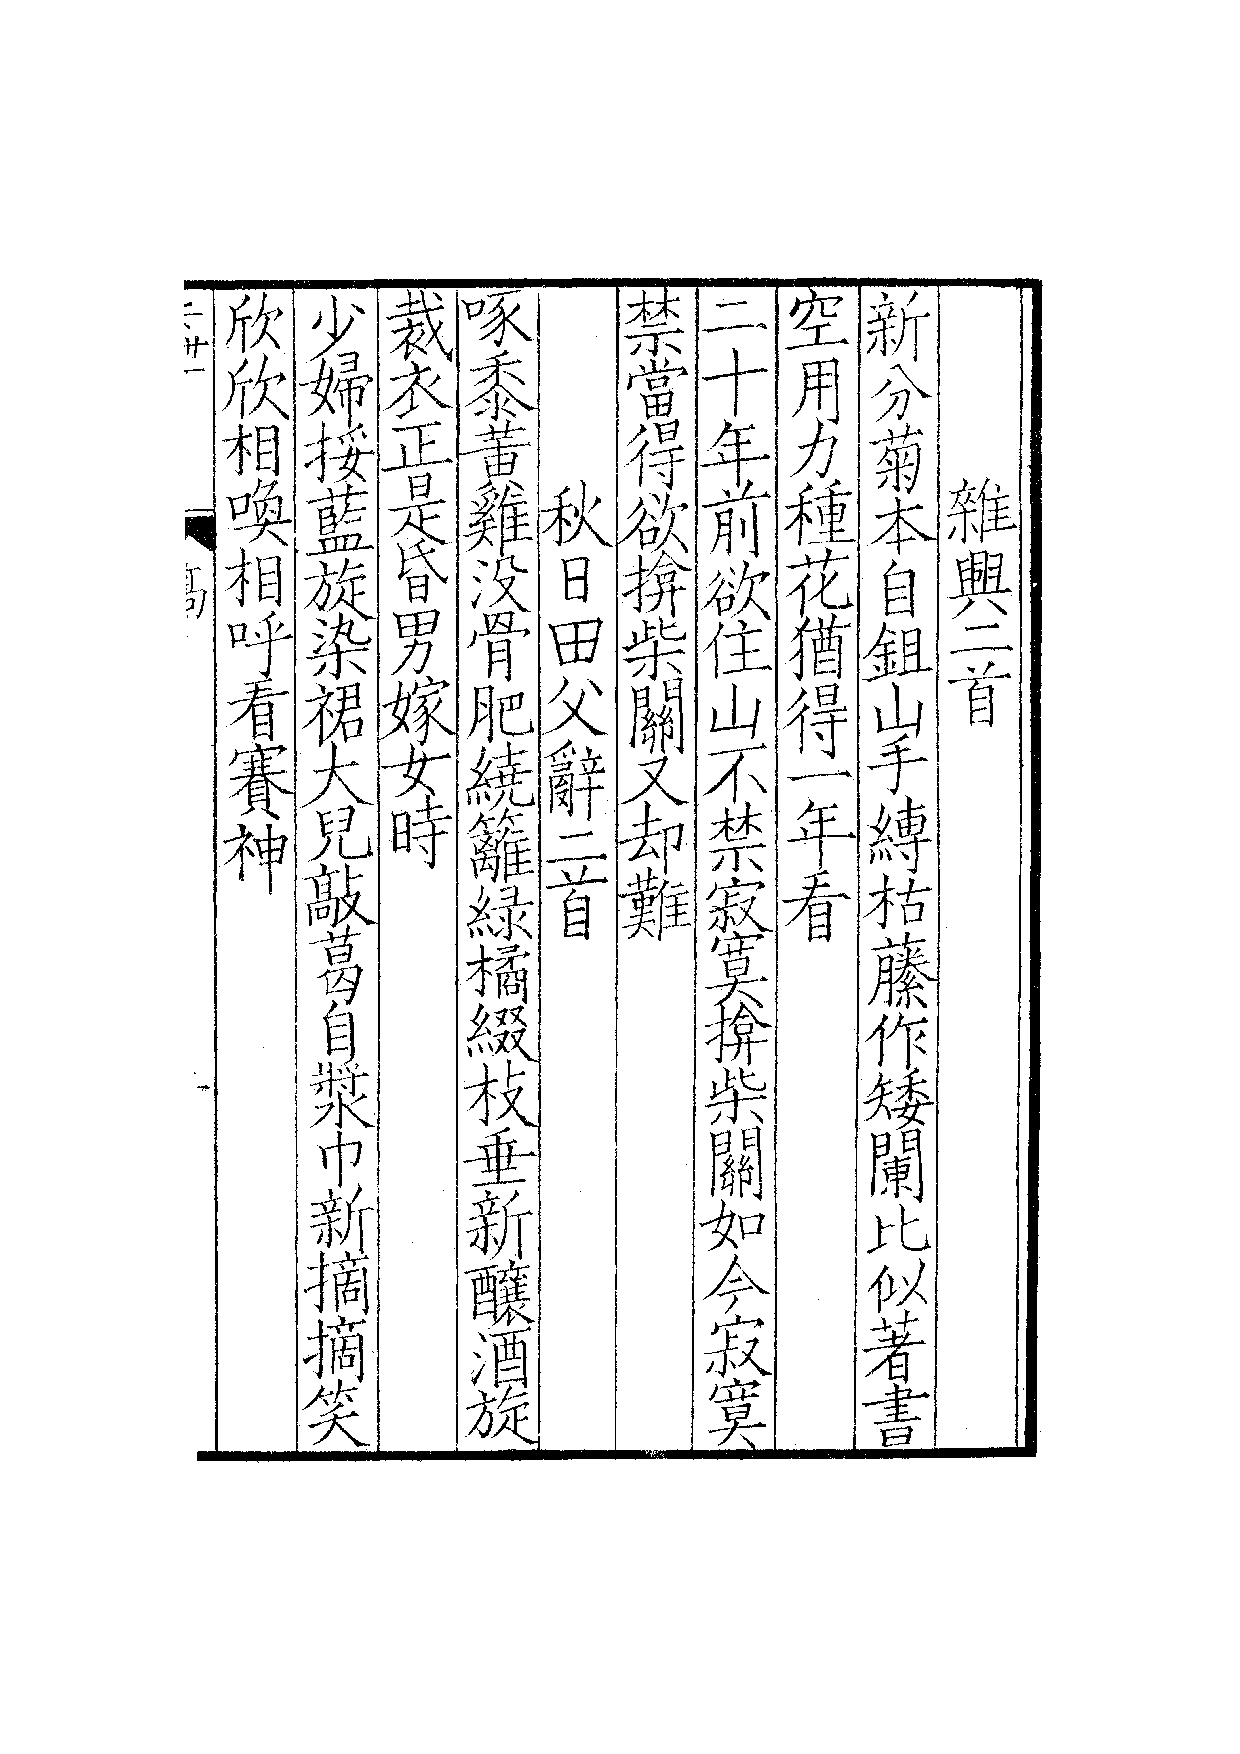 雜興二首
新分菊本自鉏山手縛枯藤作矮闌比似著書
空用力種花猶得一年看
二十年前欲住山不禁寂寞揜柴關如今寂寞
禁當得欲揜柴關又却難
秋日田父辭二首
啄黍黃雞没骨肥繞籬綠橘綴枝垂新釀酒旋
裁衣正是昏男嫁女時
少婦挼藍旋染裙大兒敲葛自漿巾新摘摘笑
欣欣相喚相呼看賽神